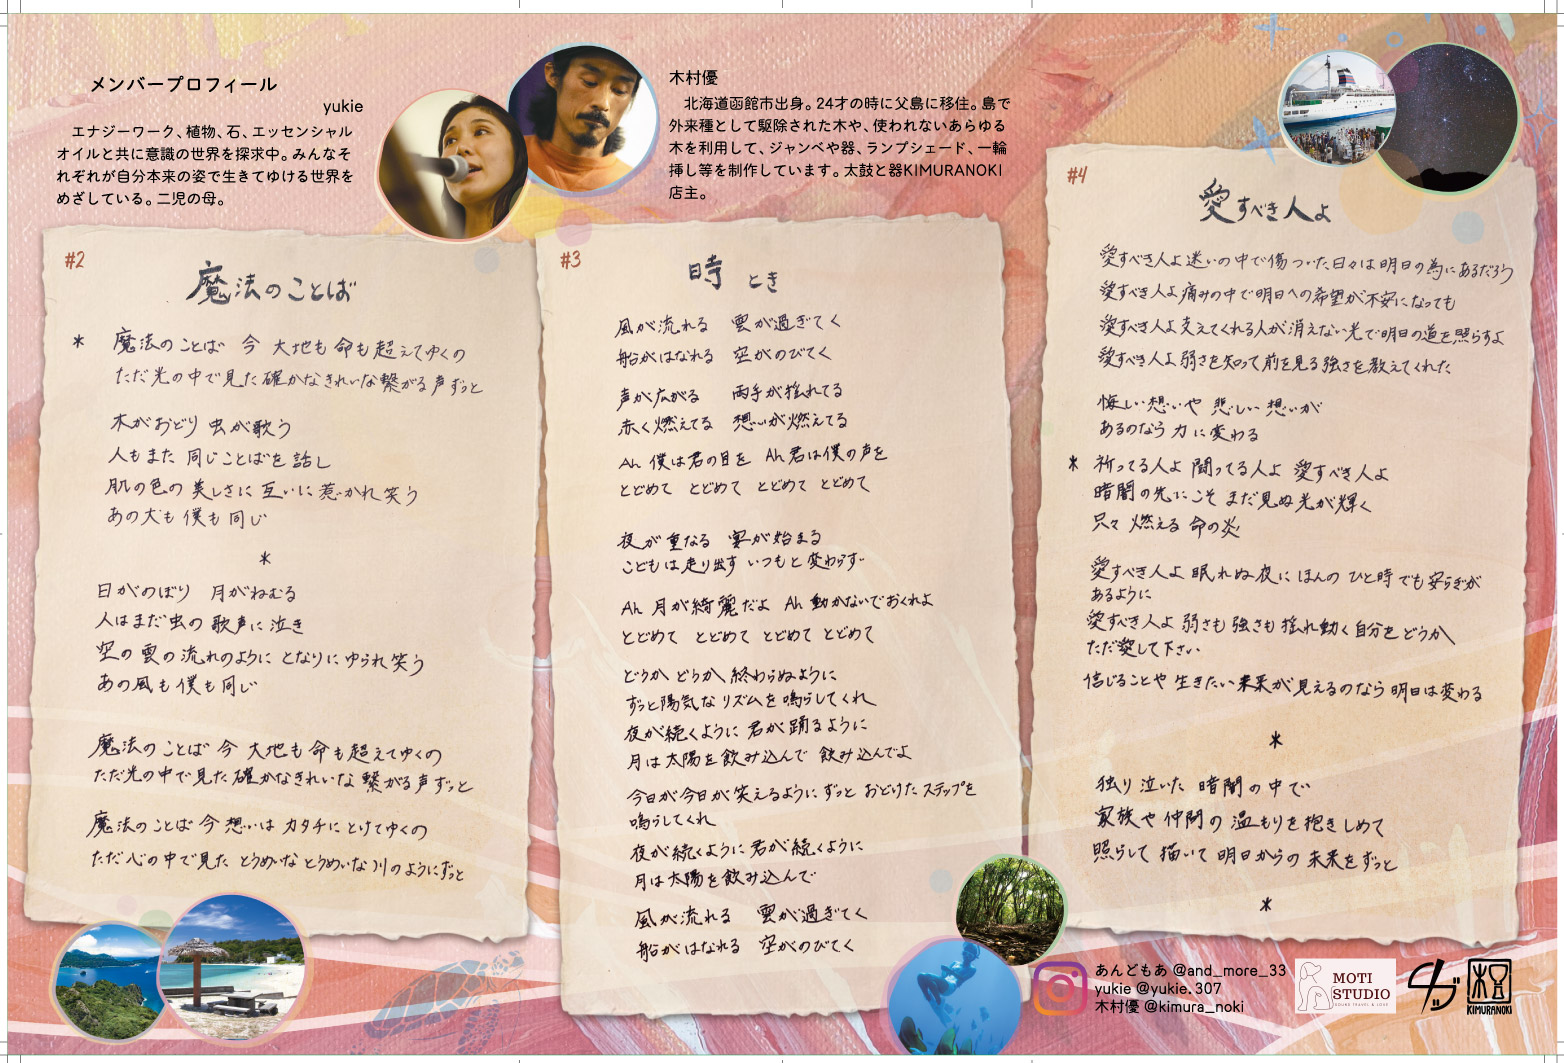 メンバープロフィール
yukie
エナジーワーク、植物、石、エッセンシャル
オイルと共に意識の世界を探求中。みんなそ
れぞれが自分本来の姿で生きてゆける世界を
めざしている。二児の母。
木村優
北海道函館市出身。24才の時に父島に移住。島で
外来種として駆除された木や、使われないあらゆる
木を利用して、ジャンベや器、ランプシェード、一輪
挿し等を制作しています。太鼓と器KIMURANOKI
店主。
#2
魔法のことば
* 魔法のことば 今 大地も命も超えてゆくの
ただ光の中で見た確かなきれいな繋がる声ずっと
木がおどり 虫が歌う
人もまた 同じことばを話し
肌の色の美しさに互いに惹かれ笑う
あの犬も僕も同じ
*
日がのぼり 月がねむる
人はまだ虫の歌声に泣き
空の雲の流れのように となりにゆられ笑う
あの風も僕も同じ
魔法のことば 今 大地も命も超えてゆくの
ただ光の中で見た確かなきれいな繋がる声ずっと
魔法のことば 今 想いはカタチにとけてゆくの
ただ心の中で見た とうめいなとうめいな川のようにずっと
#3
時 とき
風が流れる 雲が過ぎてく
船がはなれる 空がのびてく
声が広がる 両手が揺れてる
赤く燃えてる 想いが燃えてる
Ah 僕は君の目を Ah 君は僕の声を
とどめて とどめて とどめて とどめて
夜が重なる 宴が始まる
こどもは走り出す いつもと変わらず
Ah 月が綺麗だよ Ah 動かないでおくれよ
とどめて とどめて とどめて とどめて
どうか どうか 終わらぬように
ずっと陽気な リズムを鳴らしてくれ
夜が続くように 君が踊るように
月は太陽を飲み込んで 飲み込んでよ
今日が今日が笑えるように ずっと おどけた ステップを
鳴らしてくれ
夜が続くように君が続くように
月は太陽を飲み込んで
風が流れる 雲が過ぎてく
船がはなれる 空がのびてく
#4
愛すべき人よ
愛すべき人よ迷いの中で傷ついた日々は明日の為にあるだろう
愛すべき人よ痛みの中で明日への希望が不安になっても
愛すべき人よ支えてくれる人が消えない光で明日の道を照らすよ
愛すべき人よ弱さを知って前を見る強さを教えてくれた
悔しい想いや 悲しい想いが
あるのなら力に変わる
* 祈ってる人よ 闘ってる人よ 愛すべき人よ
暗闇の先にこそ まだ見ぬ光が輝く
只々 燃える 命の炎
愛すべき人よ 眠れぬ夜に ほんの ひと時でも安らぎが
あるように
愛すべき人よ 弱さも強さも揺れ動く自分をどうか
ただ愛して下さい
信じることや 生きたい未来が見えるのなら明日は変わる
*
独り泣いた 暗闇の中で
家族や仲間の温もりを抱きしめて
照らして 描いて 明日からの未来をずっと
*
あんどもあ @and_more_33
yukie @yukie.307
木村優 @kimura_noki
MOTI
STUDIO
SOUND TRAVEL & LOVE
KIMURANOKI